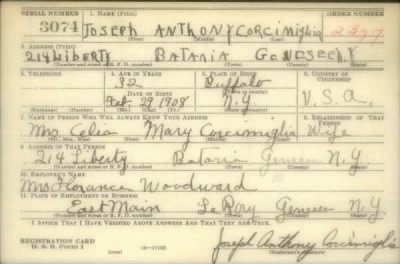 SERIAL NUMBER 1. NAME (Print) ORDER NUMBER
3074 JOSEPH ANTHONY CORCIMIGLIA
(First) (Middle) (Last)
2. ADDRESS (Print)
214 LIBERTY BATAVIA GENESEE N.Y
(Number and street or R. F. D. number) (Town) (County) (State)
3. TELEPHONE 4. AGE IN YEARS 5. PLACE OF BIRTH 6. COUNTRY OF CITIZENSHIP
32 Buffalo
DATE OF BIRTH
Feb. 29 1908 N.Y U.S.A.
(Mo.) (Day) (Yr.) (State or country)
7. NAME OF PERSON WHO WILL ALWAYS KNOW YOUR ADDRESS 8. RELATIONSHIP OF THAT PERSON
Mrs Celia Mary Corcimiglia Wife
(Mr., Mrs., Miss) (First) (Middle) (Last)
9. ADDRESS OF THAT PERSON
214 Liberty Batavia Genesee N.Y
(Number and street or R. F. D. number) (Town) (County) (State)
10. EMPLOYER'S NAME
Mrs Florance Woodward
11. PLACE OF EMPLOYMENT OR BUSINESS
East Main LeRoy Genesee N.Y
(Number and street or R. F. D. number) (Town) (County) (State)
I AFFIRM THAT I HAVE VERIFIED ABOVE ANSWERS AND THAT THEY ARE TRUE.
REGISTRATION CARD
D. S. S. FORM 1 16-17105 Joseph Anthony Corcimiglia
(Registrant's signature)